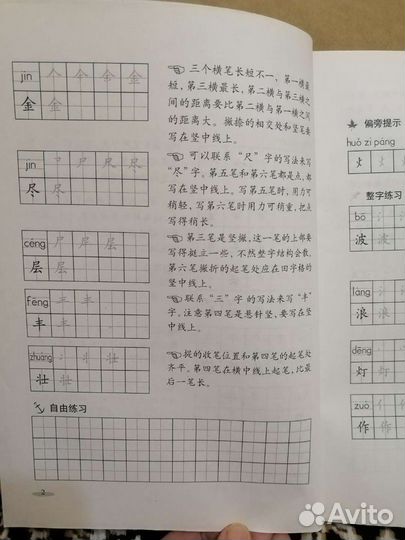 jīn
金 金
三个横笔长短不一，第一横最
短，第三横最长，第二横与第三横之
间的距离要比第二横与第一横之
间的距离大。撇捺的相交处和竖笔要
写在竖中线上。
jìn
尽 尽
可以联系“尺”字的写法来写
“尽”字。第五笔和第六笔都是点，都
在竖中线上。写第五笔时，用力可
稍轻，写第六笔时用力可稍重，把点
写得稍长。
céng
层 层
第三笔是竖撇，这一笔的上部要
写得挺立一些，不然整字结构会散。
第六笔撇折的起笔处应在田字格的
竖中线上。
fēng
丰 丰
联系“三”字的写法来写“丰”
字。注意第四笔是悬针竖，要写在竖
中线上。
zhuàng
壮 壮
提的收笔位置和第四笔的起笔处
齐平。第四笔在横中线上起笔，比最
后一笔长。
自由练习
2
偏旁提示
huǒ zì páng
整字练习
bō
波
làng
浪
dēng
灯
zuò
作 作
Avito